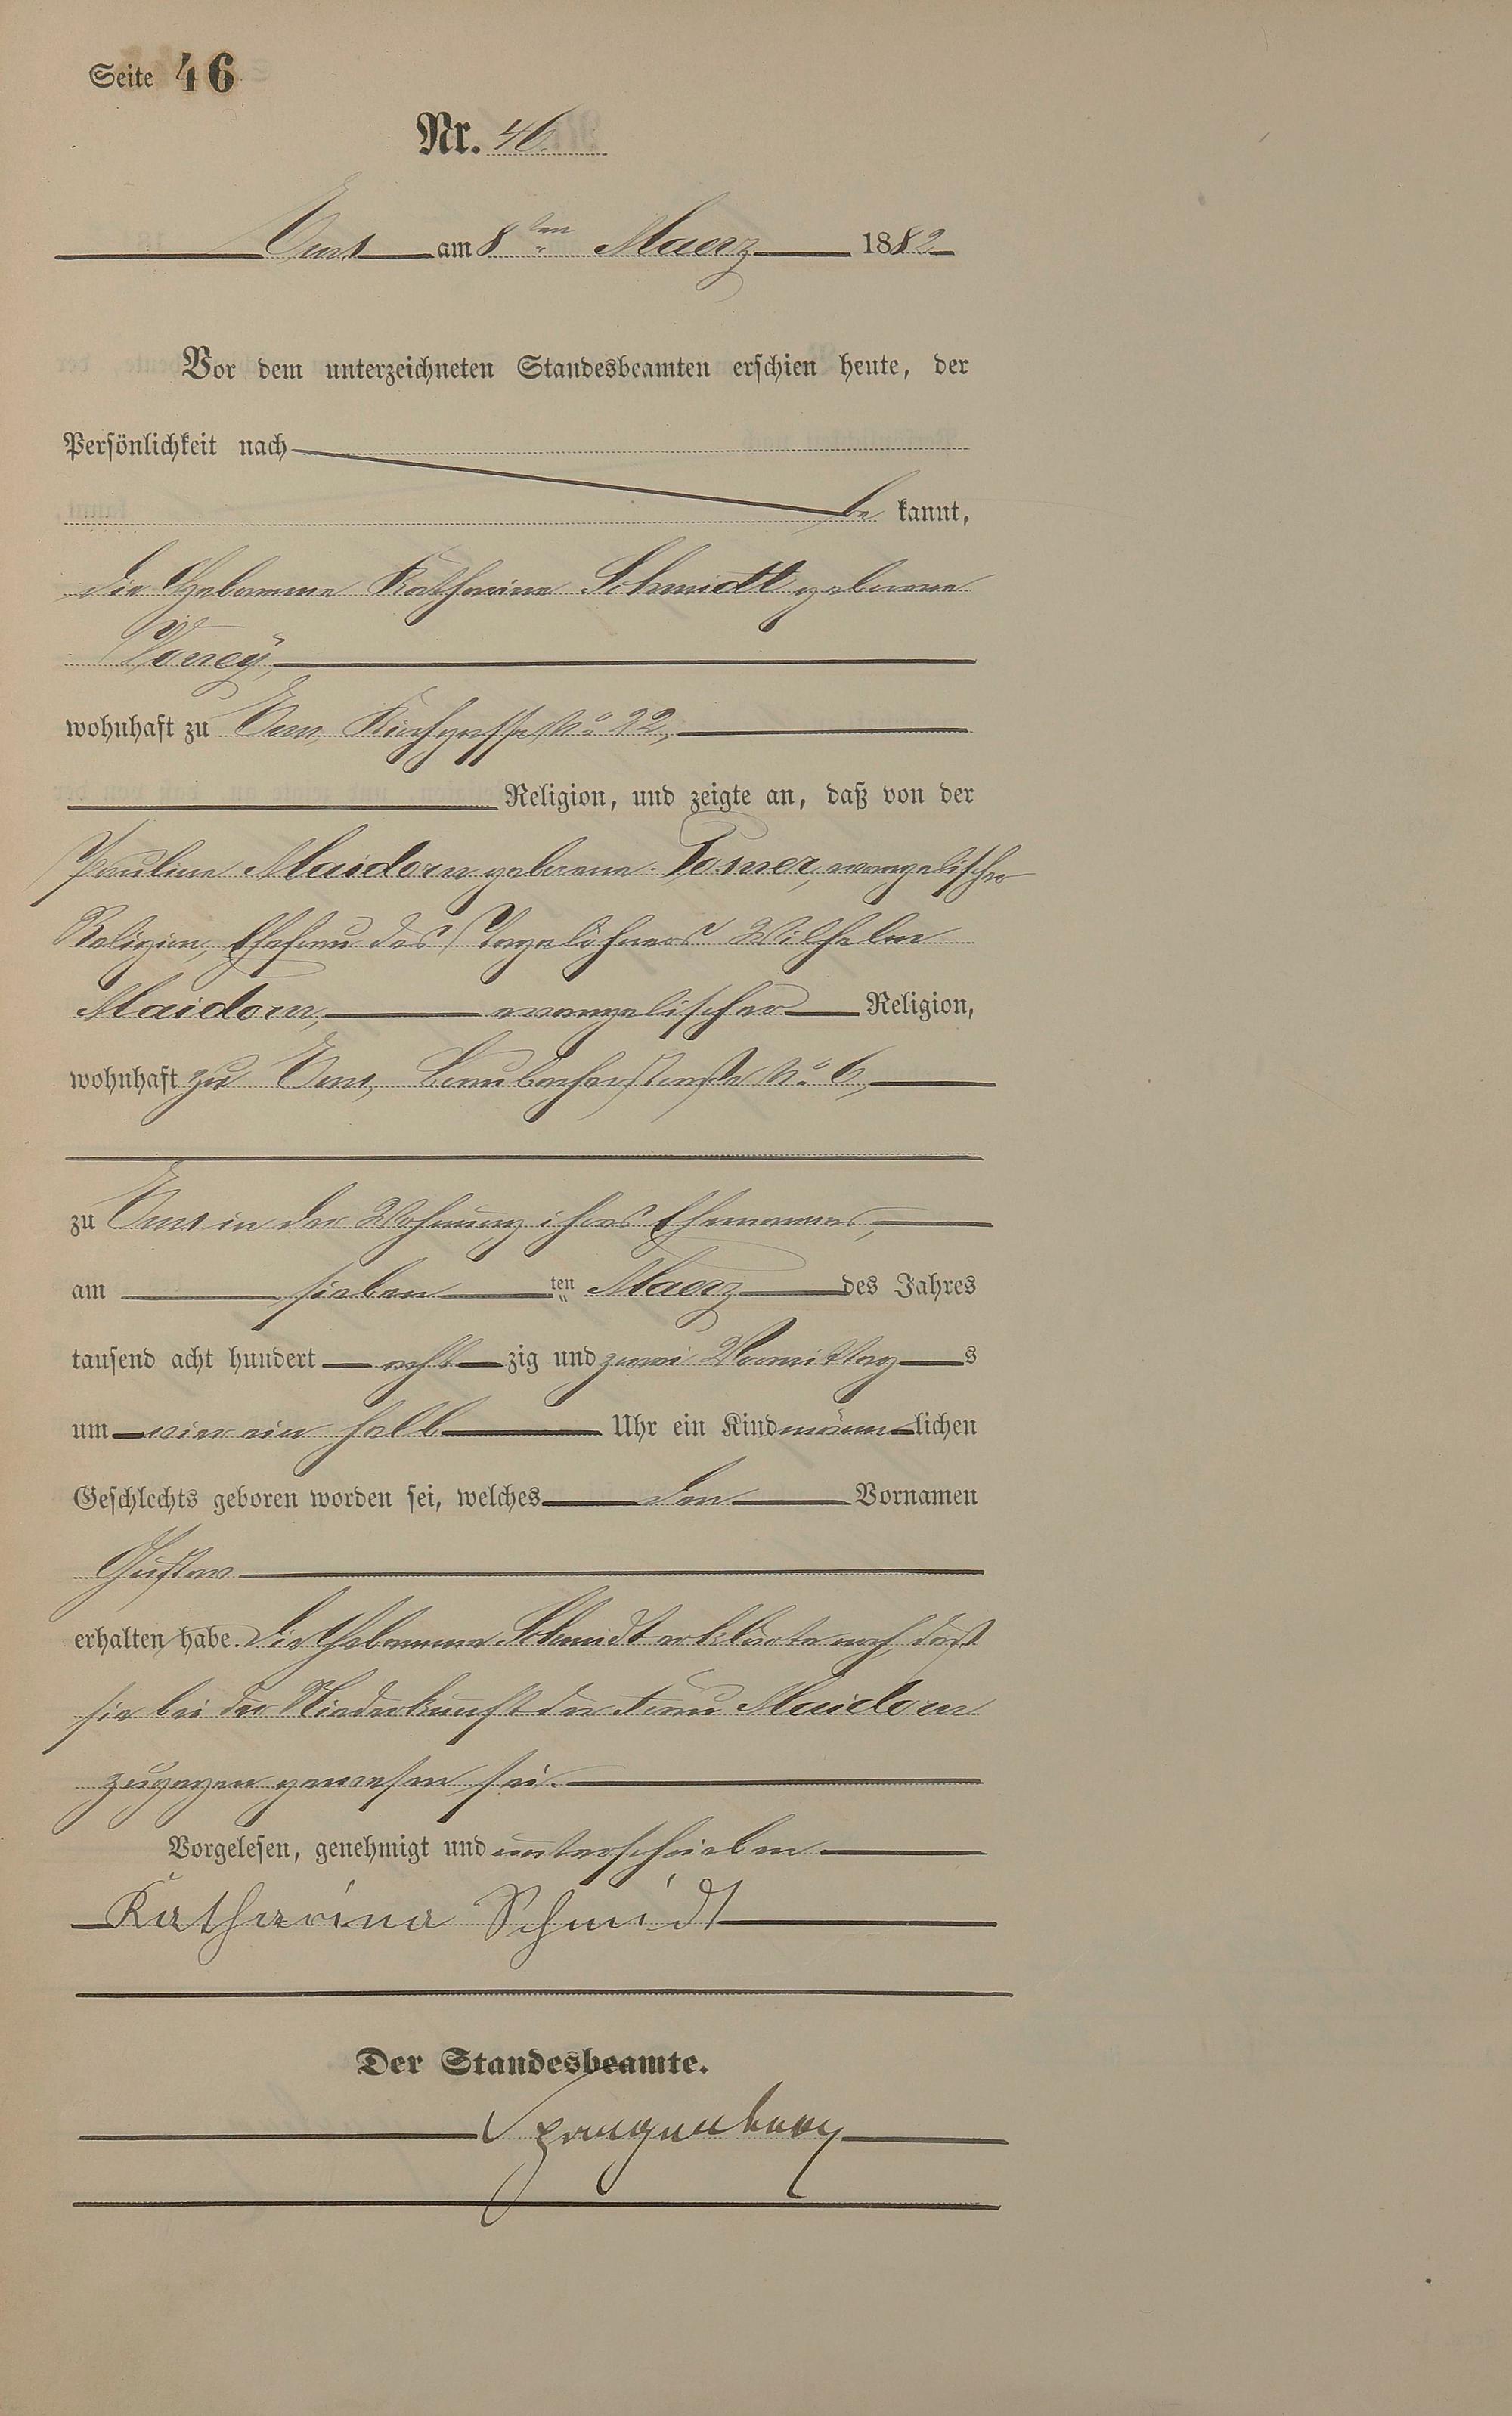 Seite 46
Nr. 46.
Ems am 8ten Maerz 1882
Vor dem unterzeichneten Standesbeamten erschien heute, der
Persönlichkeit nach
be kannt,
die Hebamme Katharina Schmidt geborene
wohnhaft zu Ems, Kirchgasse No. 22,
Religion, und zeigte an, daß von der
Pauline Maidorn geborene Posner, evangelischer
Religion, Ehefrau des Tagelöhners Wilhelm
Maidorn, evangelischer Religion,
wohnhaft zu Ems, No. 6,
zu Ems in der Wohnung ihres Ehemannes,
am sieben ten Maerz des Jahres
tausend acht hundert acht zig und zwei Vormittag s
um vier ein halb Uhr ein Kind männ lichen
Geschlechts geboren worden sei, welches den Vornamen
Gustav
erhalten habe. Die Hebamme Schmidt erklärte noch, daß
sie bei der Niederkunft der Frau Maidorn
zugegen gewesen sei.
Vorgelesen, genehmigt und unterschrieben
Katharina Schmidt
Der Standesbeamte.
Spangenberg